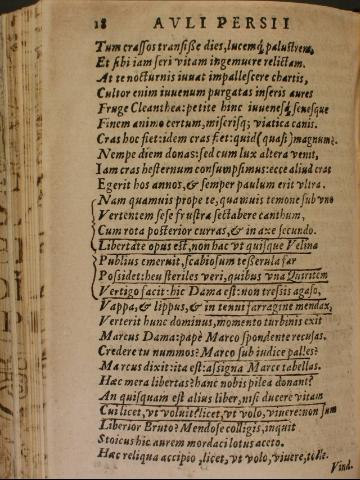 18 AVLI PERSII
Tum crassos transisse dies, lucemq́ palustrem,
Et sibi iam seri vitam ingemuere relictam.
At te nocturnis iuuat impallescere chartis,
Cultor enim iuuenum purgatas inseris aures
Fruge Cleanthea: petite hinc iuuenesq́ senesque
Finem animo certum, miserisq; viatica canis.
Cras hoc fiet: idem cras fiet: quid (quasi) magnum?
Nempe diem donas: sed cum lux altera venit,
Iam cras hesternum consumpsimus: ecce aliud cras
Egerit hos annos, & semper paulum erit vltra.
Nam quamuis prope te, quamuis temone sub vno
Vertentem sese frustra sectabere canthum,
Cum rota posterior curras, & in axe secundo.
Libertate opus est, non hac vt quisque Velina
Publius emeruit, scabiosum tesserula far
Possidet: heu steriles veri, quibus vna Quiritem
Vertigo facit: hic Dama est: non tressis agaso,
Vappa, & lippus, & in tenui farragine mendax,
Verterit hunc dominus, momento turbinis exit
Marcus Dama: papè Marco spondente recusas.
Credere tu nummos? Marco sub iudice palles?
Marcus dixit: ita est: assigna Marce tabellas.
Hac mera libertas? hanc nobis pilea donant?
An quisquam est alius liber, nisi ducere vitam
Cui licet, vt voluit? licet, vt volo, viuere: non sum
Liberior Bruto? Mendose colligis, inquit
Stoicus hic aurem mordaci lotus aceto.
Hac reliqua accipio, licet, vt volo, viuere, tolle.
Vind.